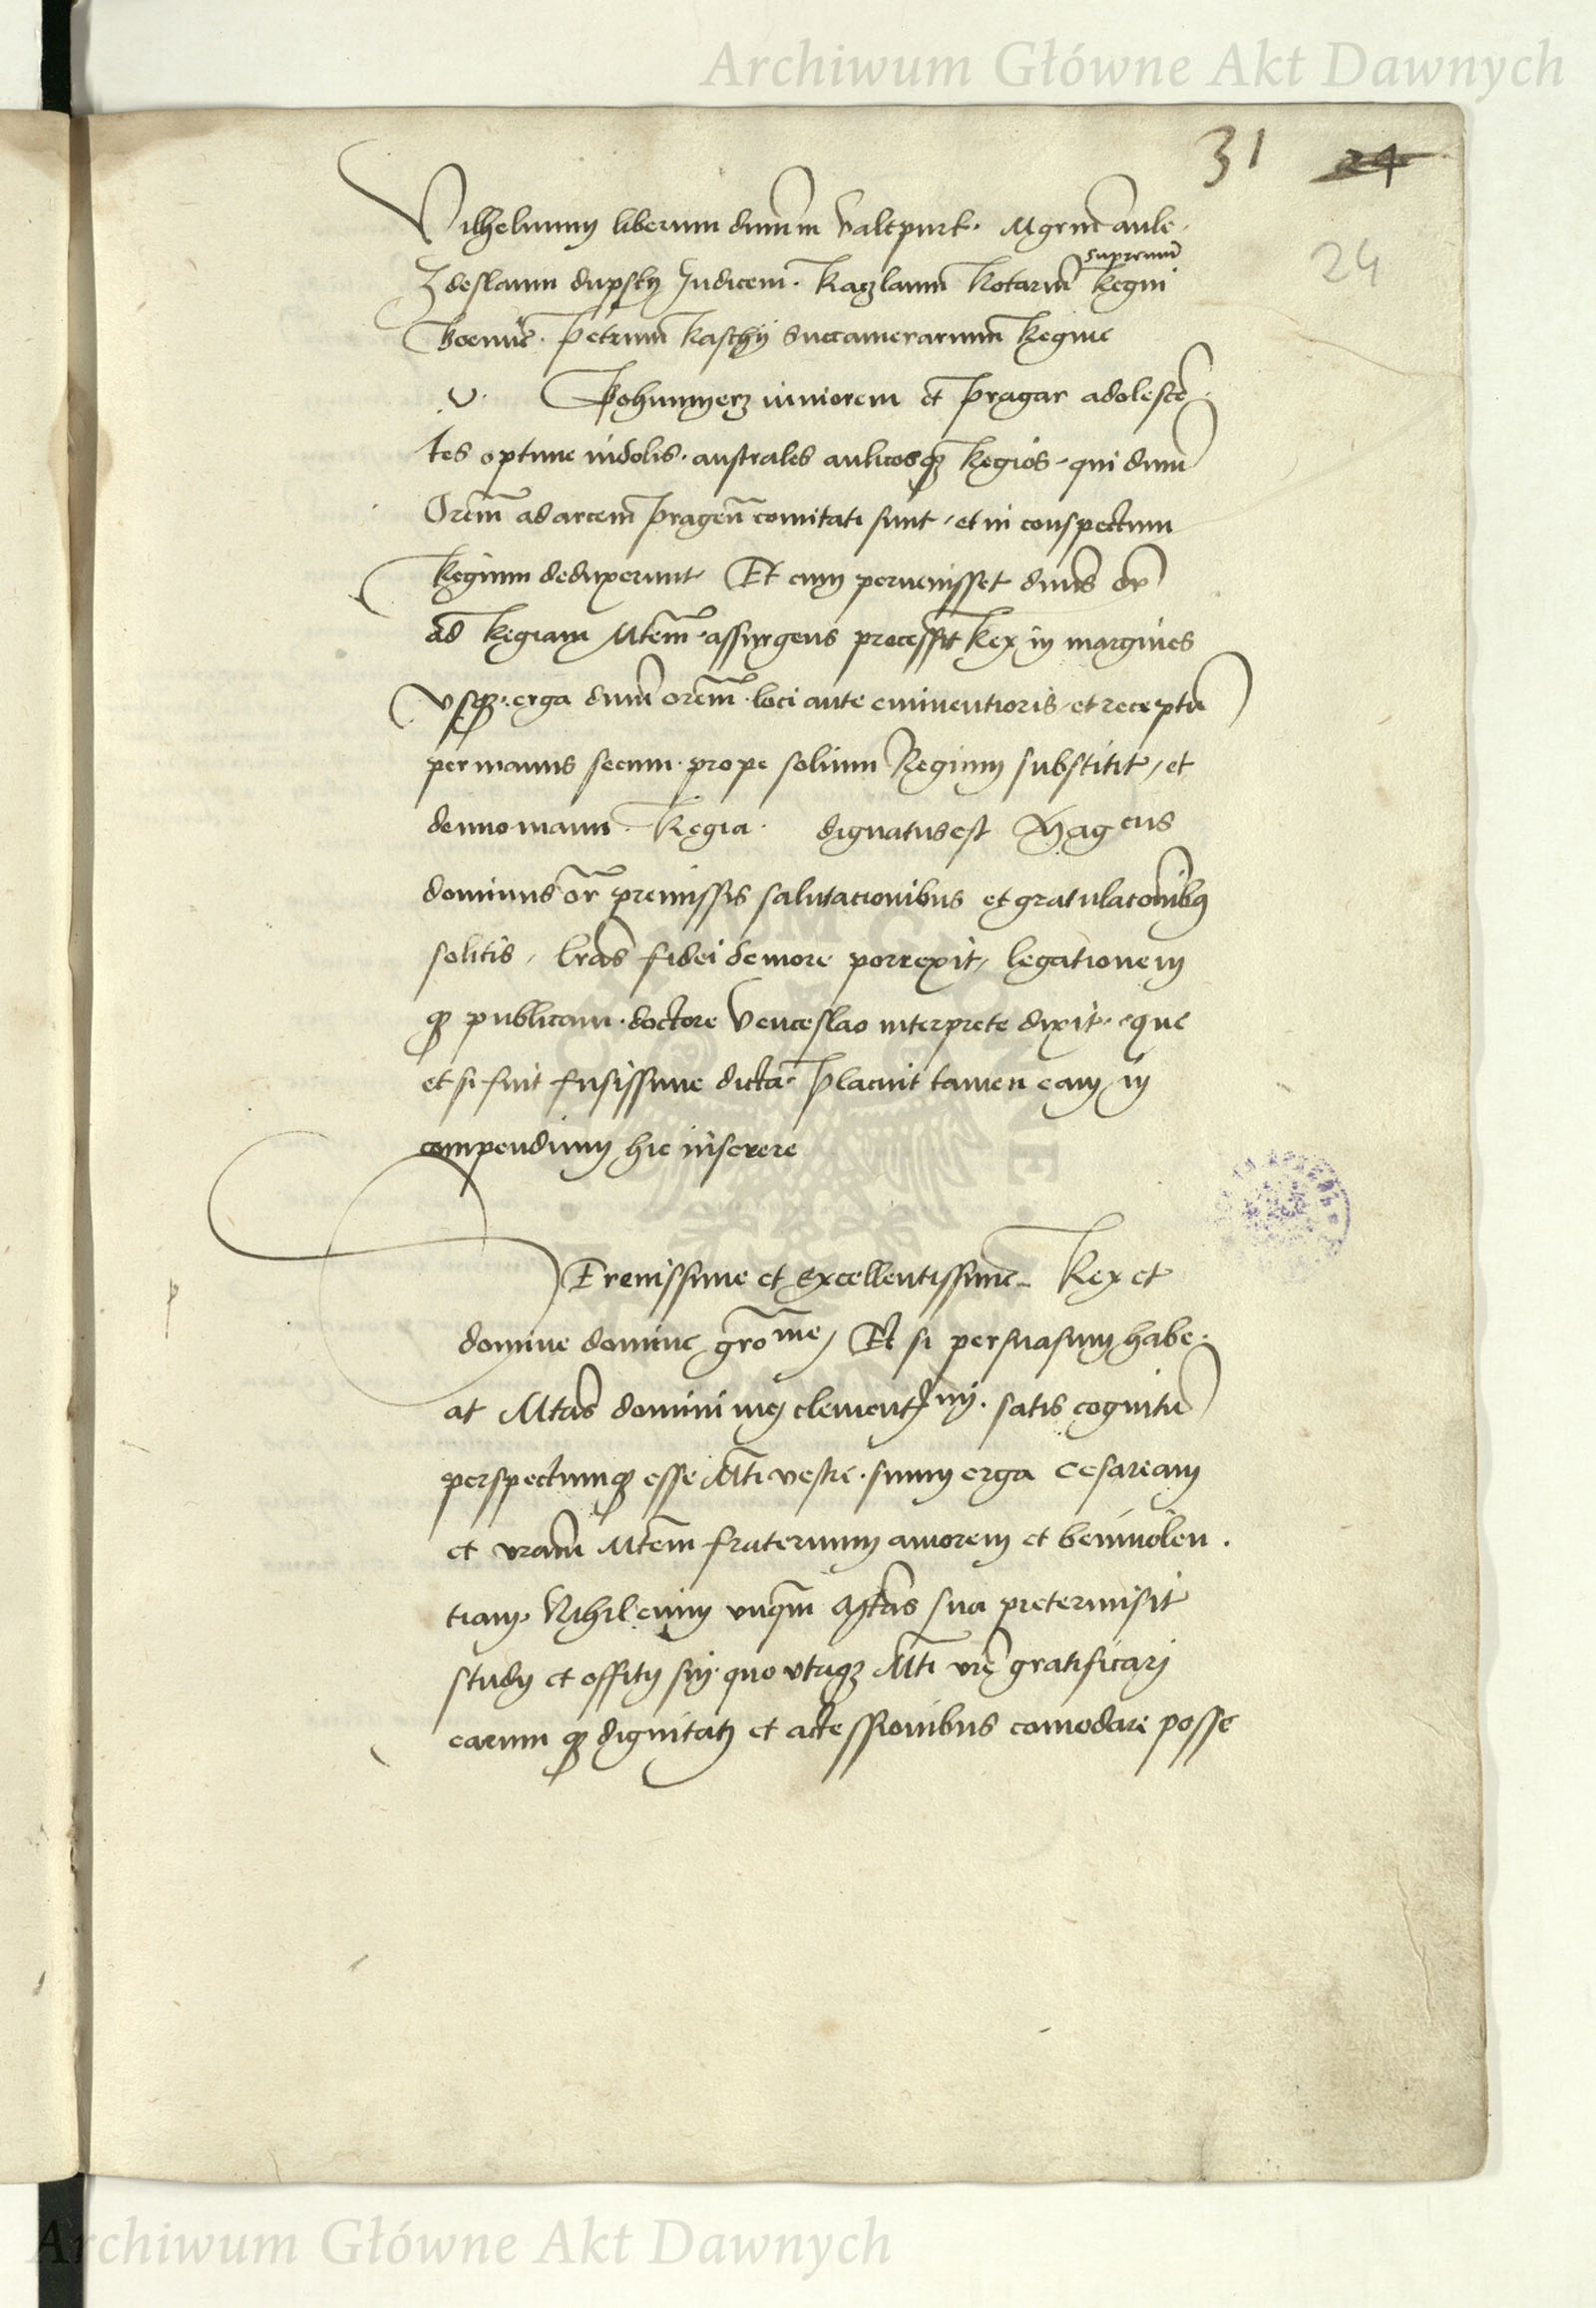 Archiwum Główne Akt Dawnych
31 24
24
Vilhelmum liberum dnum in Valtpurk. Mgrm Cañ aule.
Zdeslaum dupsky Judicem. Razlaum Notariũ supremũ Regni
Boemie. Petrum Raschij succamerarium Regine
V. Pohunnyerz iuniorem et Pragar adolescẽ
tes optime indolis. australes aulicosq̃ Regios. qui dnm̃
Orẽm ad arcem Pragen̄ comitati sunt, et in conspectum
Regium deduxerunt Et cum pervenisset dnus or̃
ad Regiam Mtẽm. assurgens processit Rex in margines
usq̃. erga dnm̃ orẽm. loci ante eminentioris, et receptũ
per manus secum. prope solium Regium substitit, et
denuo manu. Regia. dignatus est Magcus
dominus or̃ premissis salutationibus et gratulatõnibq
solitis, lrãs fidei de more porrexit, legationem
q̃ publicam. doctore Venceslao interprete dixit. que
et si fuit fusissime dicta. Placuit tamen eam in
compendium hic inserere
Serenissime et Excellentissime Rex et
domine domine grõme, Et si persuasum habe.
at Mtãs domini mej clementjmj. satis cognitũ
perspectumq̃ esse Mt̃i vestre. suum erga Cesaream
et vrãm Mtẽm fraternum amorem et benivolen.
tiam. Nihil enim unq̃m Mtãs sua pretermisit
studij et offitij suj. quo utriq̃ Mt̃i vrẽ gratificarj
earum q̃ dignitatj et accessionibus comodare posse
Archiwum Główne Akt Dawnych